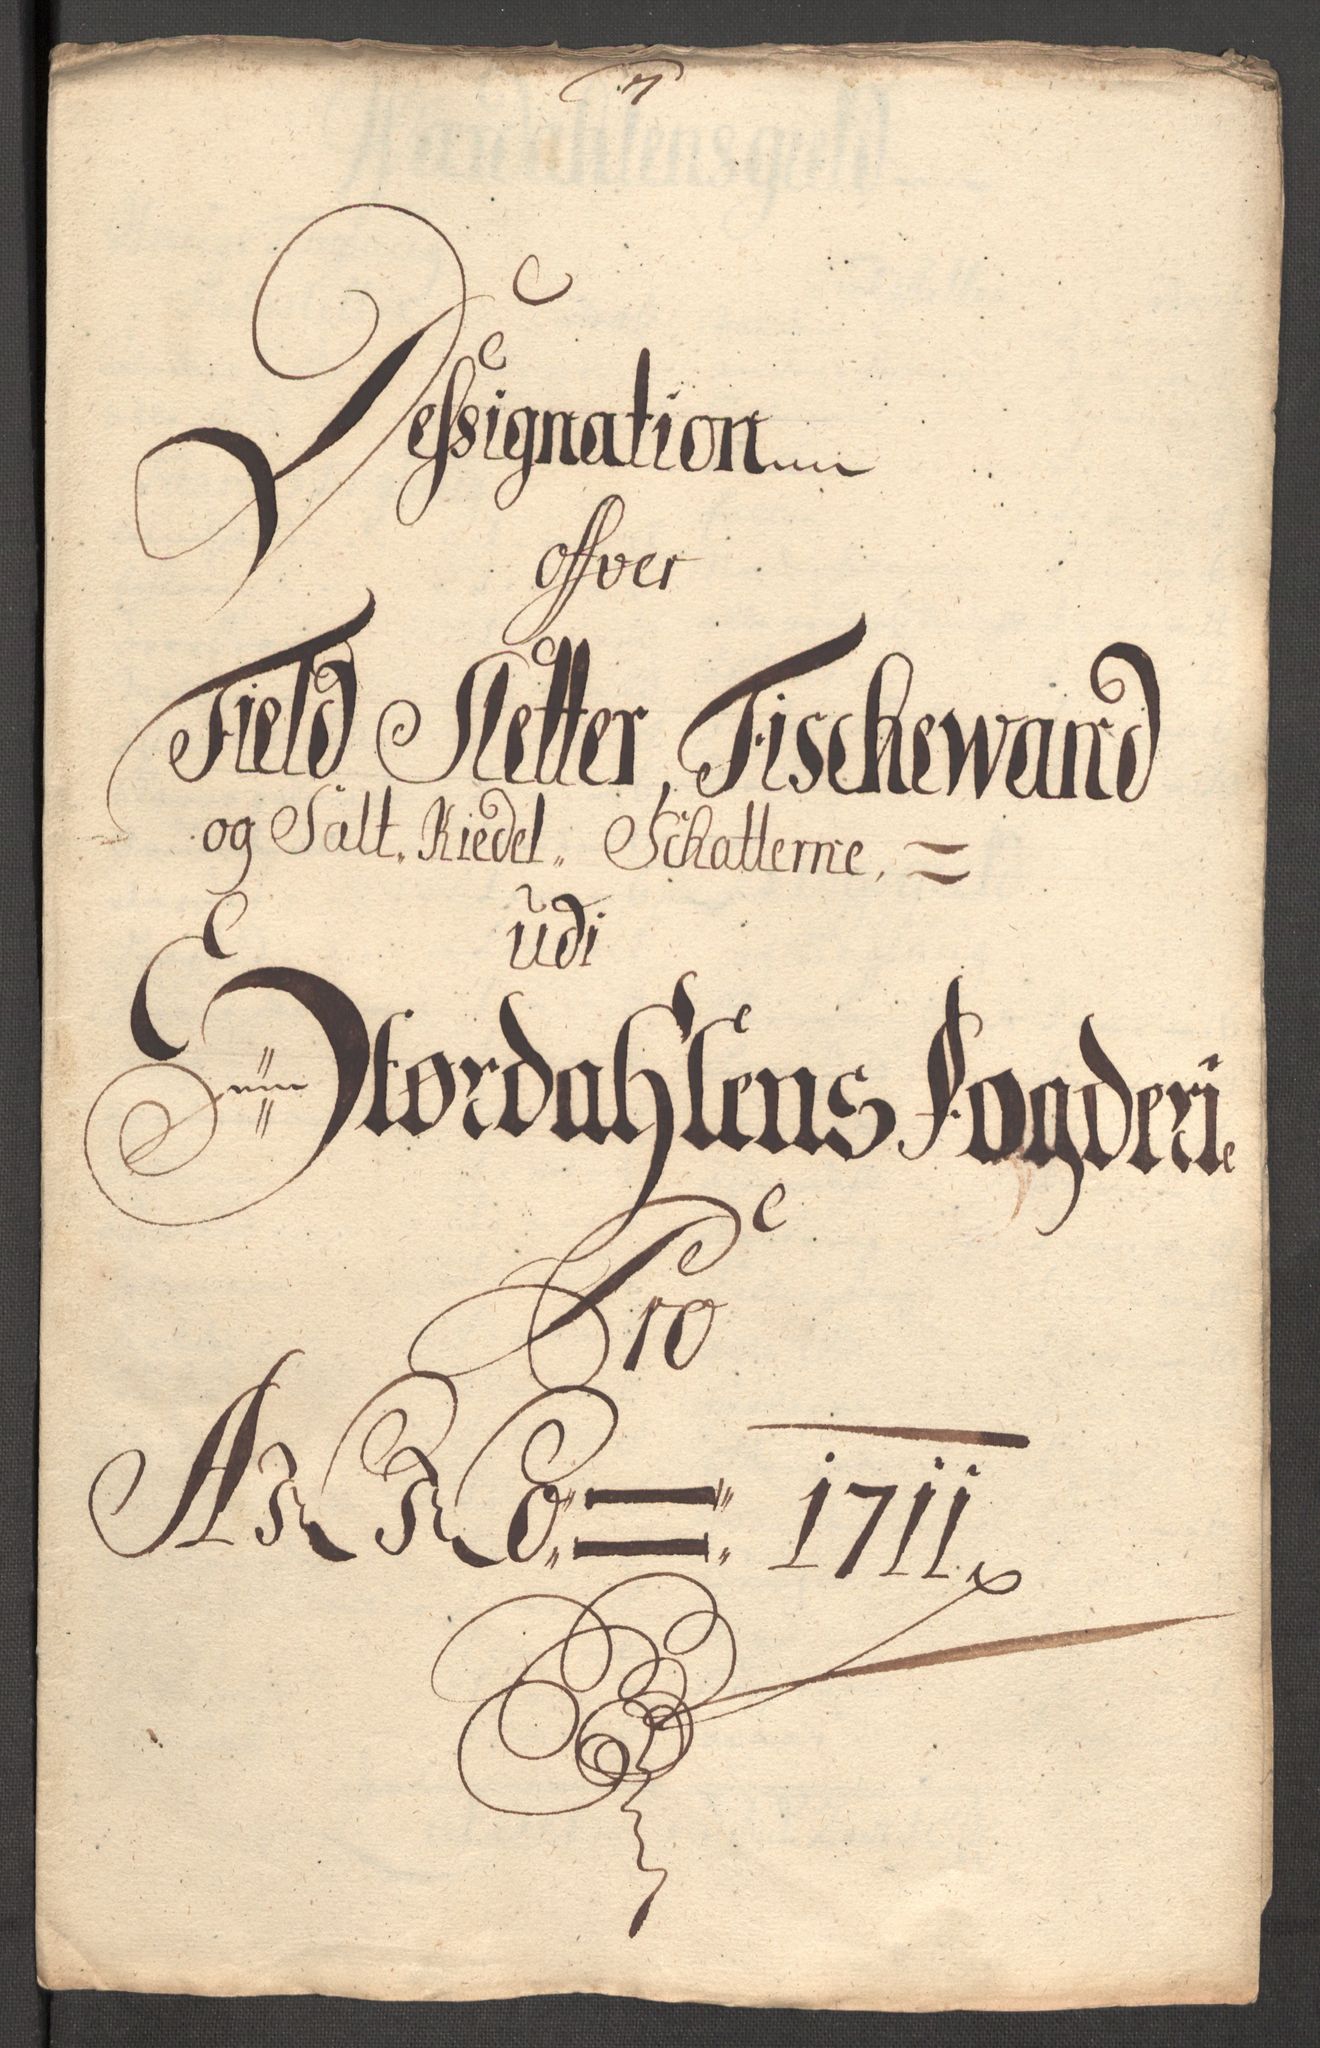 Dessignation
offver
Field Sletter, Fischewand
og Salt. Kiedel. Schatterne,
udi
Stordahlens Fogderie
Pro
ANNO. 1711.